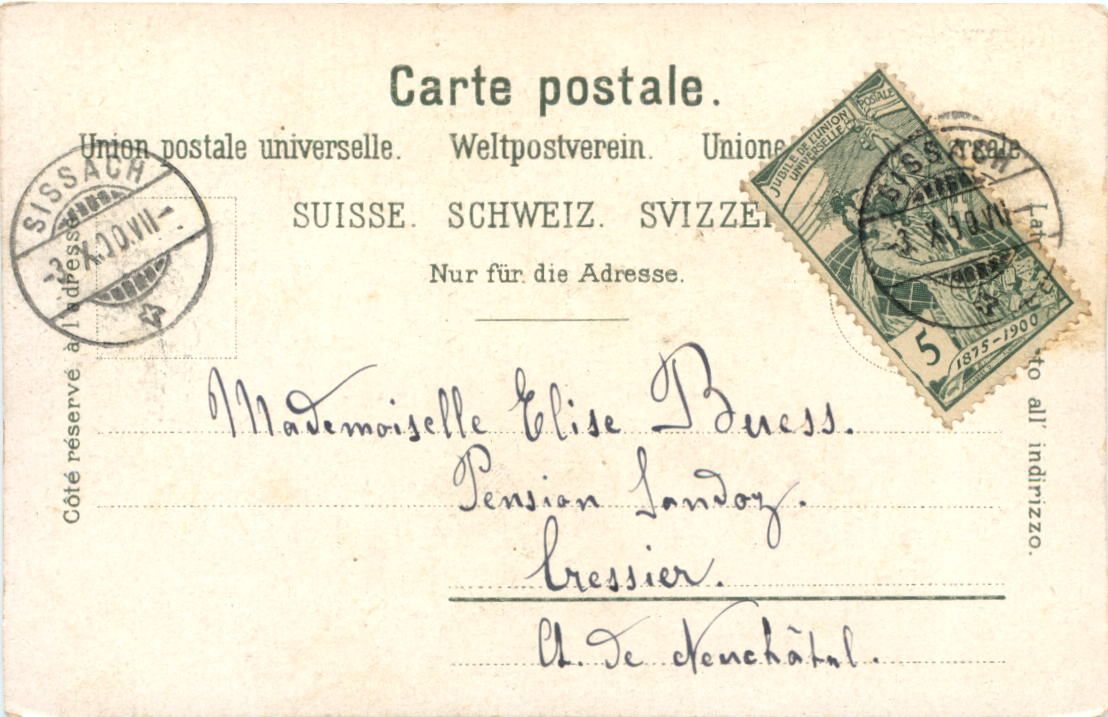 Carte postale.
Union postale universelle. Weltpostverein. Unione
SUISSE. SCHWEIZ. SVIZZE
Nur für die Adresse.
SISSACH
-3.X.00.VII-
JUBILÉ DE L'UNION
POSTALE
UNIVERSELLE
5
1875-1900
SISSACH
-3.X.00.VII
Côté réservé à l'adresse
Lato all' indirizzo.
Mademoiselle Elise Buess.
Pension Sandoz.
Cressier.
Ct. de Neuchâtel.